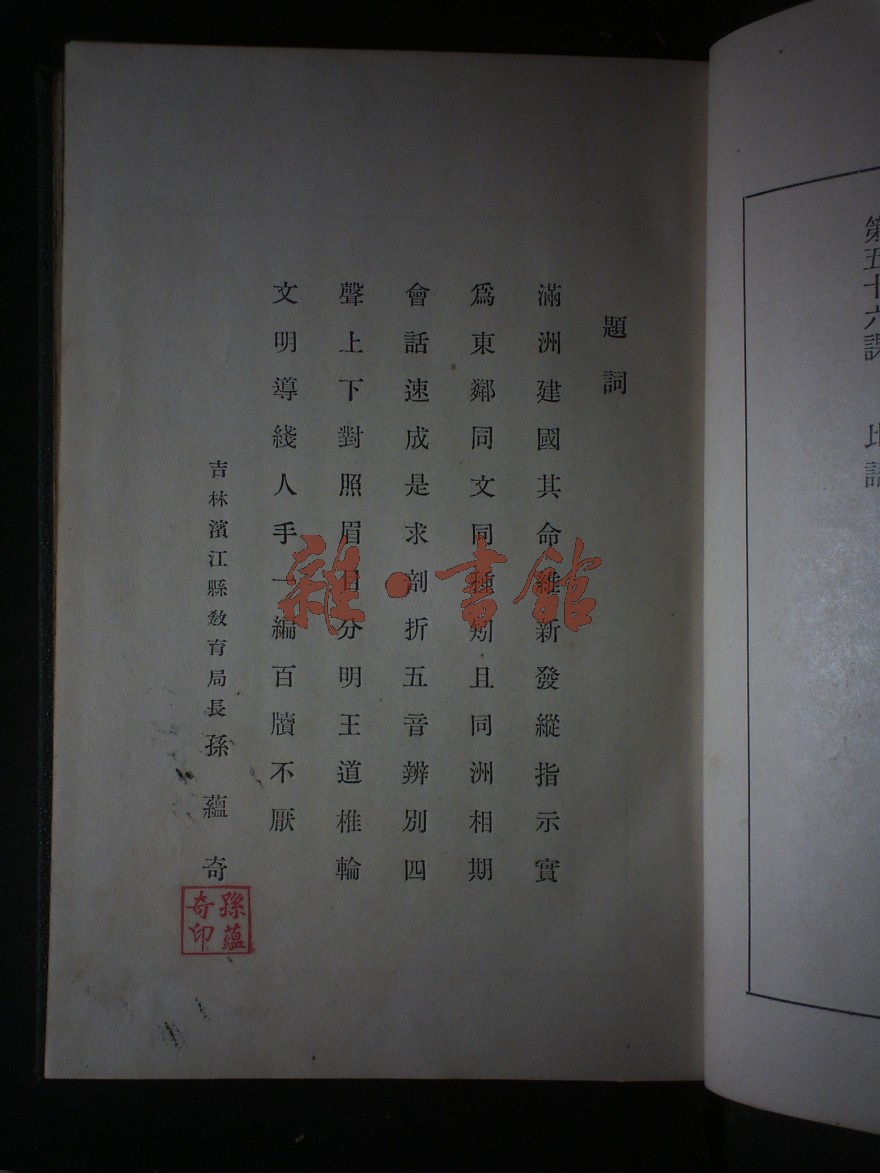 題詞
滿洲建國其命維新發縱指示實
爲東鄰同文同種矧且同洲相期
會話速成是求剖折五音辨別四
聲上下對照眉目分明王道椎輪
文明導綫人手一編百牘不厭
吉林濱江縣教育局長 孫蘊奇
孫蘊奇印
雜·書館
第五十六課